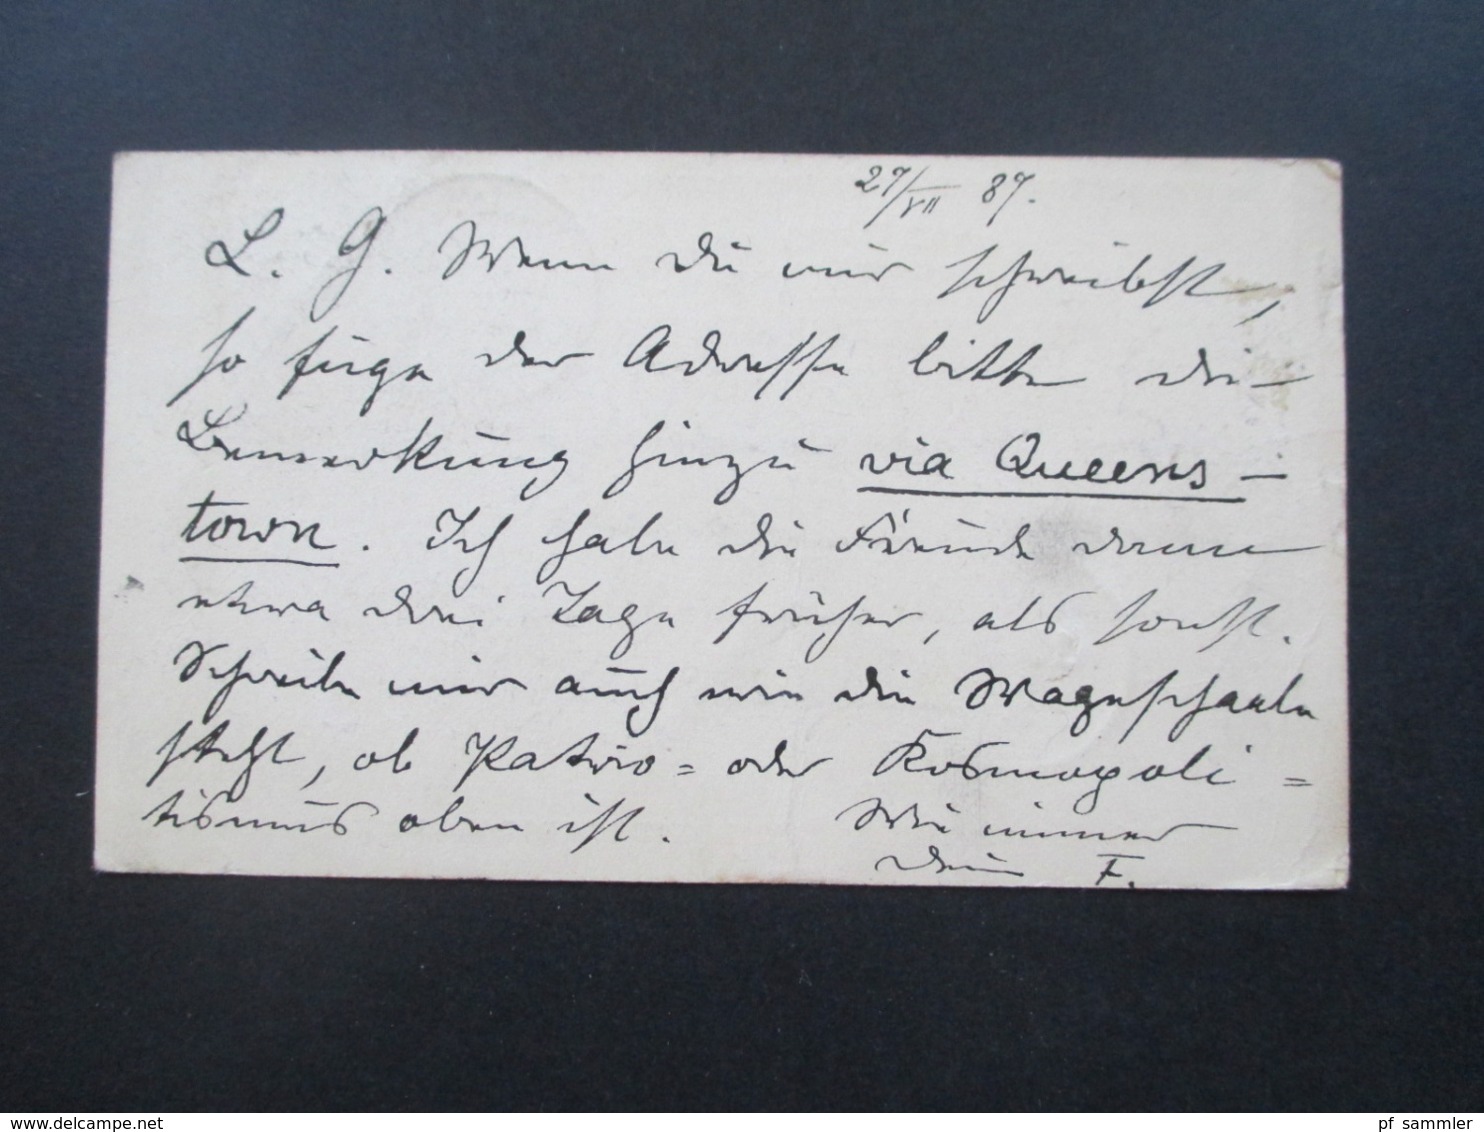 27/VII 87.
L. G. Wenn Du mir schreibst,
so füge der Adresse bitte die
Bemerkung hinzu via Queens-
town. Ich habe die Freude dann
etwa drei Tage früher, als sonst.
Schreibe mir auch wie die Wageschaale
steht, ob Patrio= oder Kosmopoli=
tismus oben ist. Wie immer
Dein F.
delcampe.net
pf_sammler